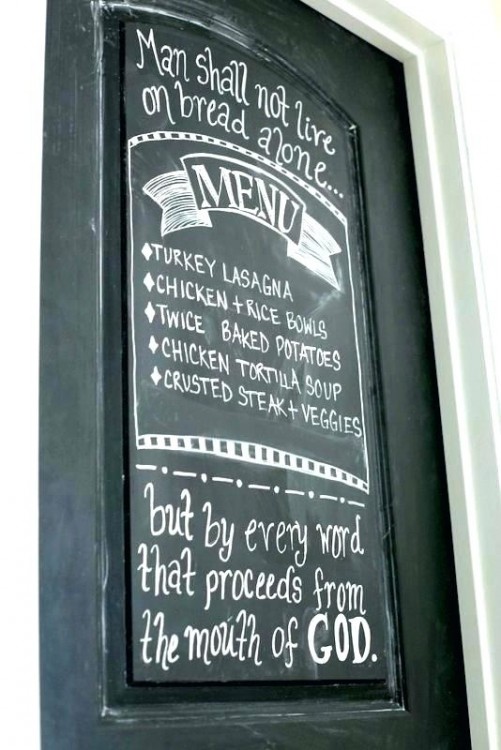 Man shall not live
on bread alone...
MENU
♦TURKEY LASAGNA
♦CHICKEN + RICE BOWLS
♦TWICE BAKED POTATOES
♦CHICKEN TORTILLA SOUP
♦CRUSTED STEAK + VEGGIES
but by every word
that proceeds from
the mouth of GOD.